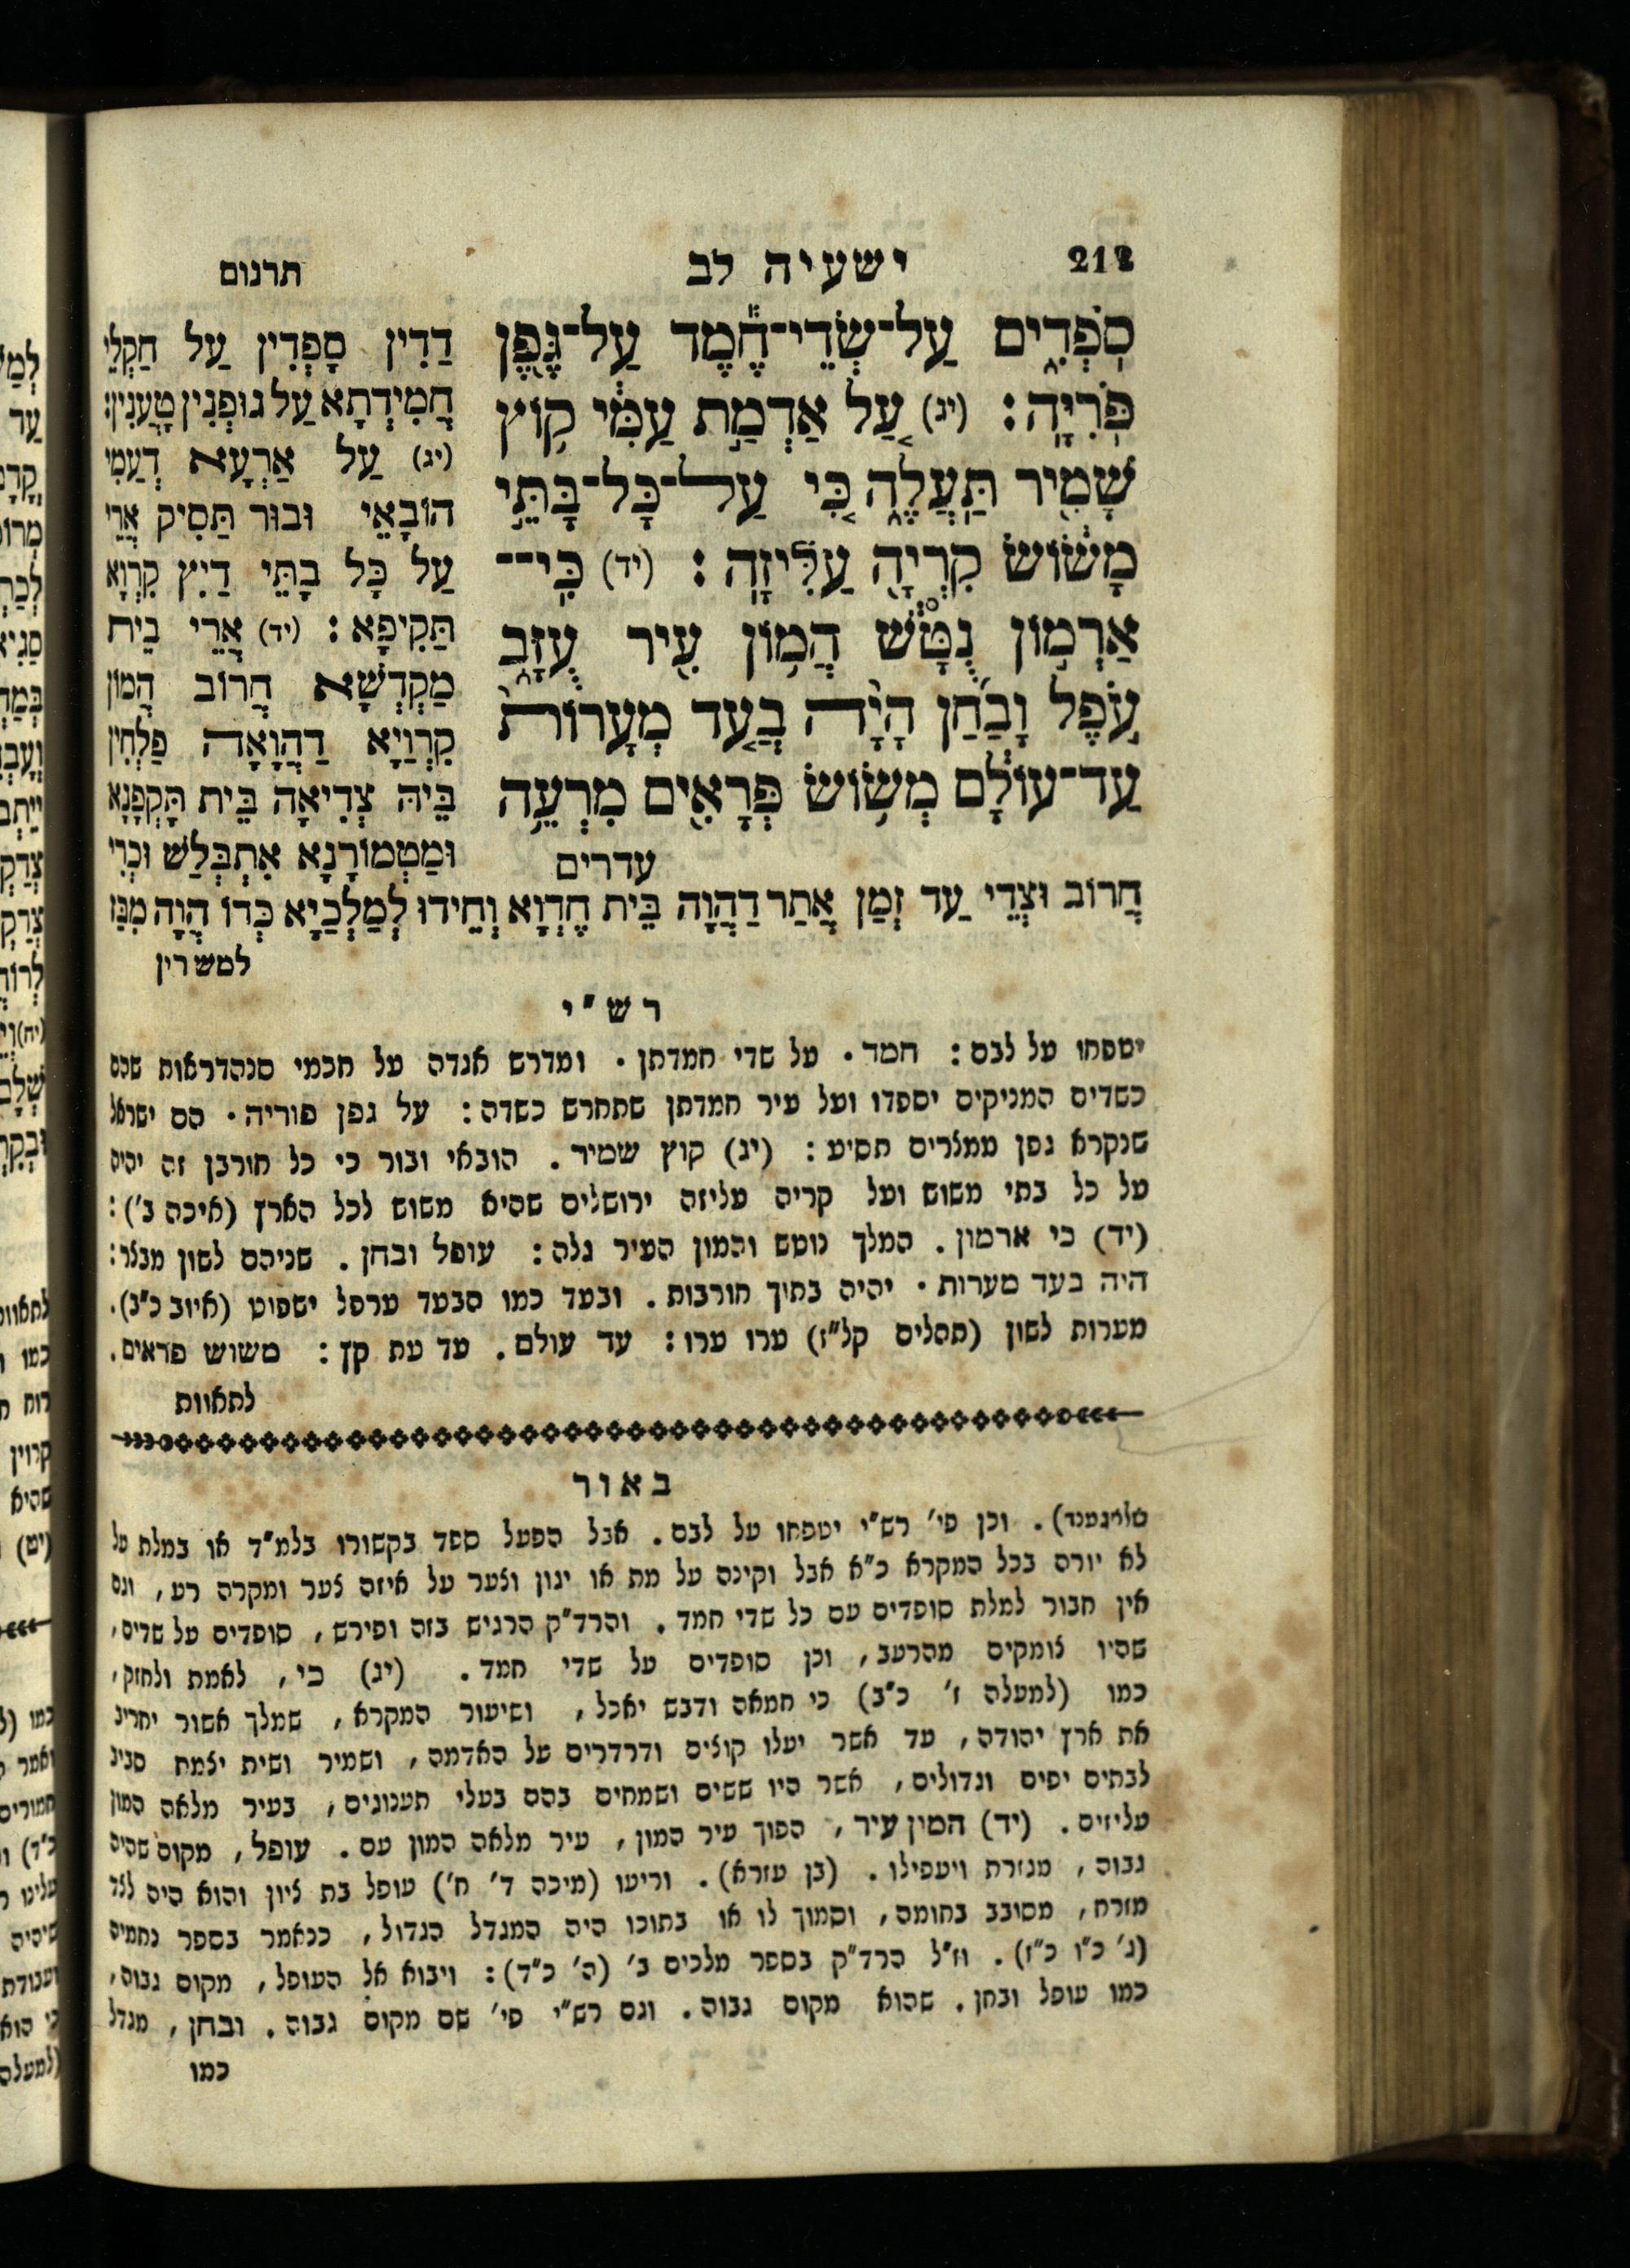 212
ישעיה לב
תרגום
סֹפְדִים עַל־שְׂדֵי־חֶמֶד עַל־גֶּפֶן
פֹּרִיָּה׃ (יג) עַל אַדְמַת עַמִּי קוֹץ
שָׁמִיר תַּעֲלֶה כִּי עַל־כָּל־בָּתֵּי
מָשׂוֹשׂ קִרְיָה עַלִּיזָה׃ (יד) כִּי־
אַרְמוֹן נֻטָּשׁ הֲמוֹן עִיר עֻזָּב
עֹפֶל וָבַחַן הָיָה בְעַד מְעָרוֹת
עַד־עוֹלָם מְשׂוֹשׂ פְּרָאִים מִרְעֵה
עדרים
דַדִין סָפְדִין עַל חַקְלֵי
חֲמִידְתָא עַל גוּפְנִין טָעֲנִין׃
(יג) עַל אַרְעָא דְעַמִי
הוֹבָאֵי וּבוּר תַּסִיק אֲרֵי
עַל כָּל בָתֵּי דִיץ קִרְוָא
תַּקִיפָא׃ (יד) אֲרֵי בֵית
מַקְדְשָׁא חֲרוֹב הֲמוֹן
קִרְוַיָא דַהֲוָאָה פַלְחִין
בֵּיהּ צְדִיאָה בֵּית תָּקְפָנָא
וּמַטְמוֹרָנָא אִתְבְּלַשׁ וּכְרֵי
חֲרוֹב וּצְדֵי עַד זְמַן אֲתַר דַהֲוָה בֵּית חֶדְוָא וְחֵידוּ לְמַלְכַיָא כְּדוֹ הֲוָה מְבַּז
למשרין
רש״י
יטפחו על לבם׃ חמד. על שדי חמדתן. ומדרש אגדה על חכמי סנהדראות שהם
כשדים המניקים יספדו ועל עיר חמדתן שתחרש כשדה׃ על גפן פוריה. הם ישראל
שנקרא גפן ממצרים תסיע׃ (יג) קוץ שמיר. הובאי ובור כי כל חורבן זה יהיה
על כל בתי משוש ועל קריה עליזה ירושלים שהיא משוש לכל הארץ (איכה ב׳)׃
(יד) כי ארמון. המלך נוטש והמון העיר גלה׃ עופל ובחן. שניהם לשון מבצר׃
היה בעד מערות. יהיה בתוך חורבות. ובעד כמו הבעד ערפל ישפוט (איוב כ״ב).
מערות לשון (תהלים קל״ז) ערו ערו׃ עד עולם. עד עת קץ׃ משוש פראים.
לתאוות
באור
וכן פי׳ רש״י יטפחו על לבם. אבל הפעל ספד בקשורו בלמ״ד או במלת על
לא יורה בכל המקרא כ״א אבל וקינה על מת או יגון וצער על איזה צער ומקרה רע, וגם
אין חבור למלת סופדים עם כל שדי חמד. והרד״ק הרגיש בזה ופירש, סופדים על שדים,
שהיו צומקים מהרעב, וכן סופדים על שדי חמד. (יג) כי, לאמת ולחזק,
כמו (למעלה ז׳ כ״ב) כי חמאה ודבש יאכל, ושיעור המקרא, שמלך אשור יחריב
את ארץ יהודה, עד אשר יעלו קוצים ודרדרים על האדמה, ושמיר ושית יצמח סביב
לבתים יפים וגדולים, אשר היו ששים ושמחים בהם בעלי תענוגים, בעיר מלאה המון
עליזים. (יד) המון עיר, הפוך עיר המון, עיר מלאה המון עם. עופל, מקום שהיה
גבוה, מגזרת ויעפילו. (בן עזרא). וריעו (מיכה ד׳ ח׳) עופל בת ציון והוא היה לצד
מזרח, מסובב בחומה, וסמוך לו או בתוכו היה המגדל הגדול, כנאמר בספר נחמיה
(ג׳ כ״ו כ״ז). וז״ל הרד״ק בספר מלכים ב׳ (ה׳ כ״ד)׃ ויבוא אל העופל, מקום גבוה,
כמו עופל ובחן. שהוא מקום גבוה. וגם רש״י פי׳ שם מקום גבוה. ובחן, מגדל
כמו